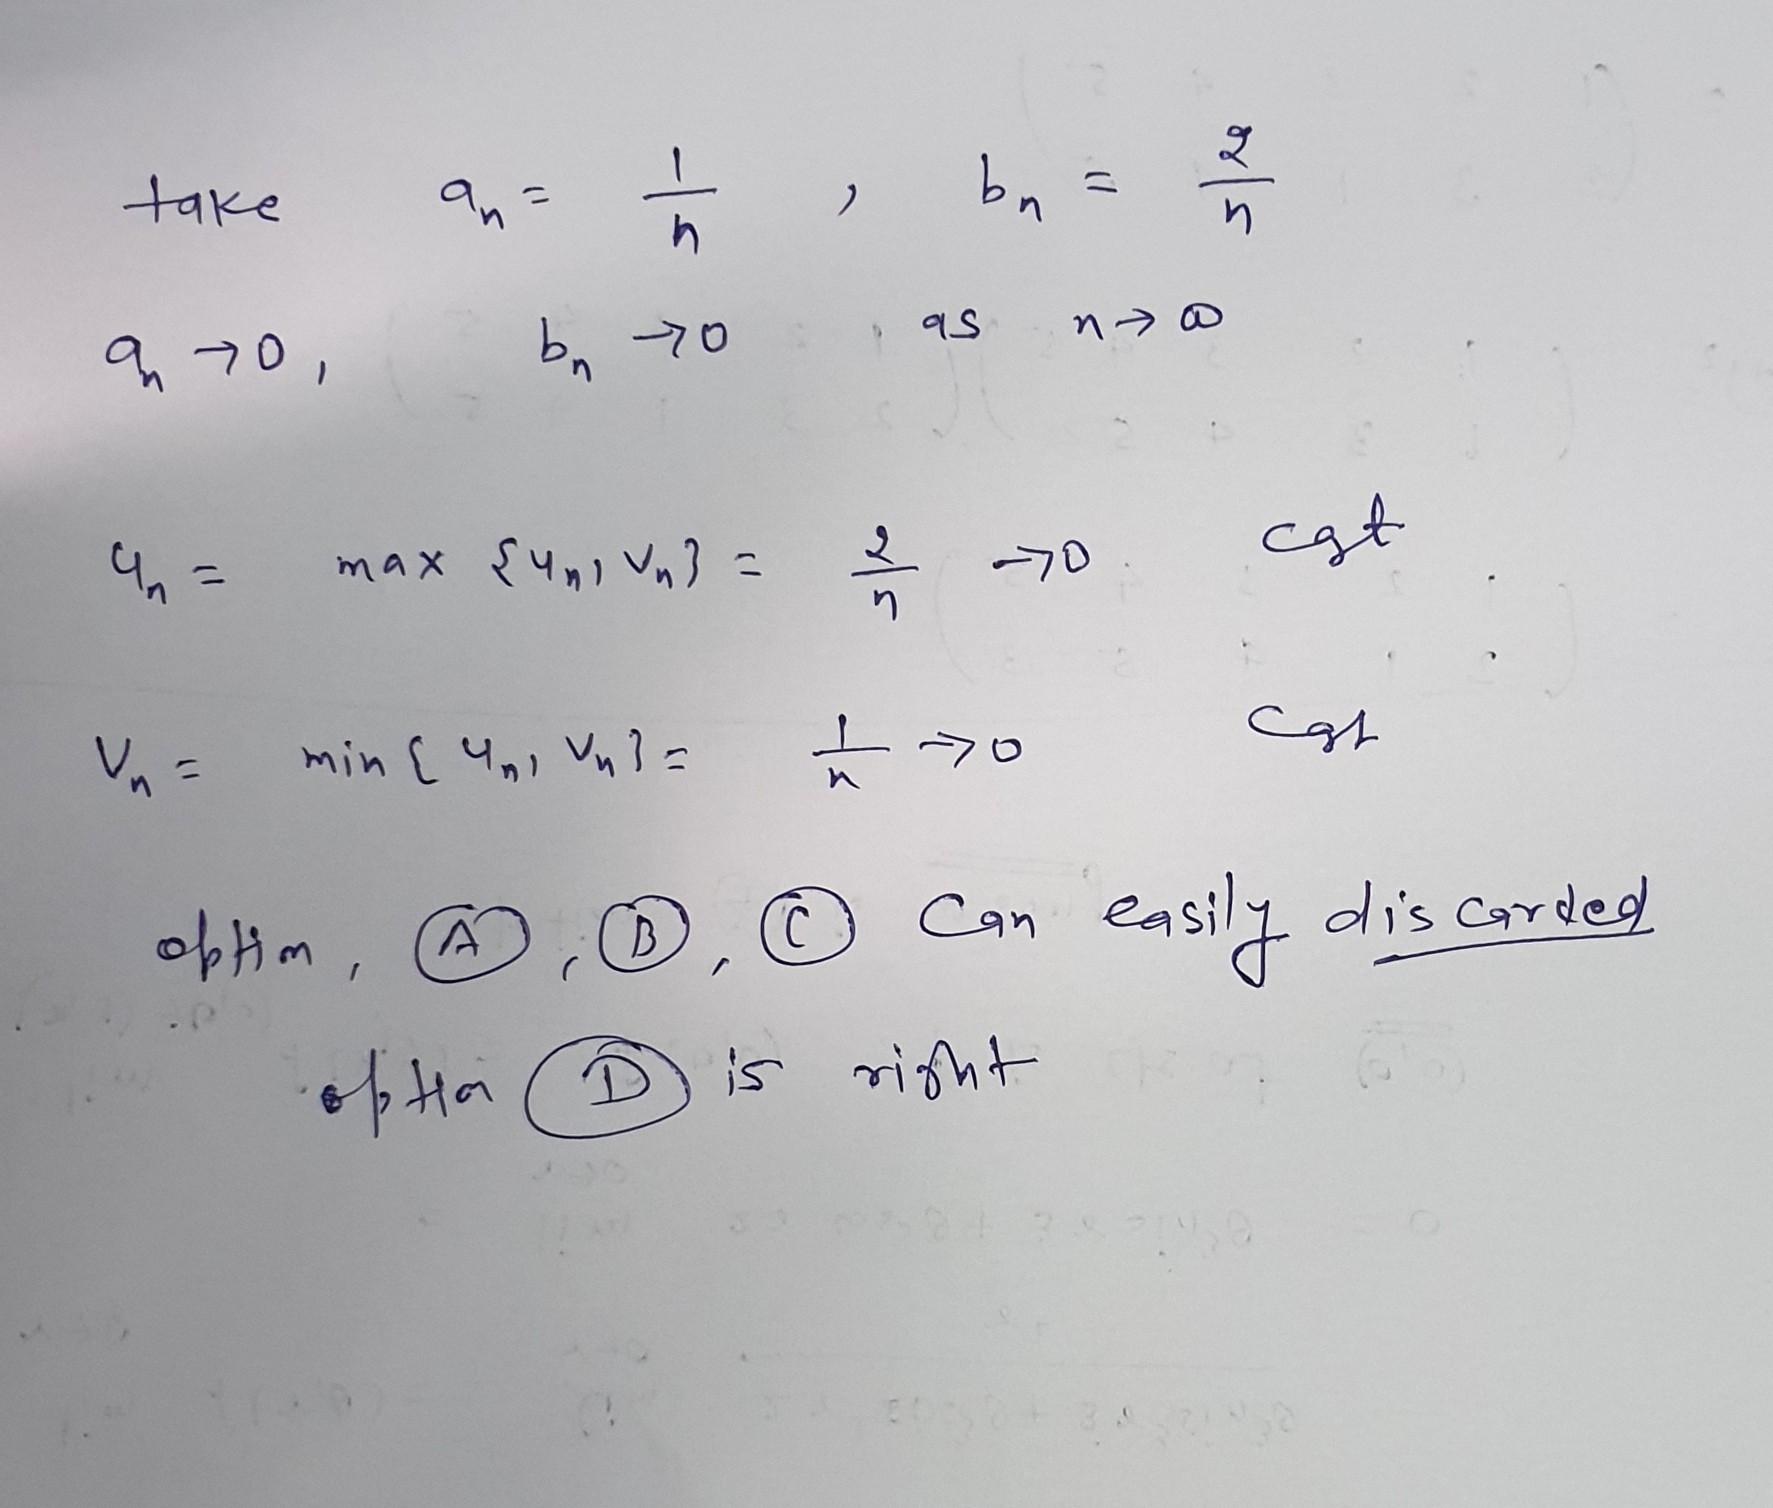 take aₙ = 1/n , bₙ = 2/n
aₙ → 0, bₙ → 0 , as n → ∞
uₙ = max {uₙ, vₙ} = 2/n → 0. cgt
vₙ = min { uₙ, vₙ } = 1/n → 0 cgt
option, Ⓐ, Ⓑ, Ⓒ Can easily discarded
option Ⓓ is right